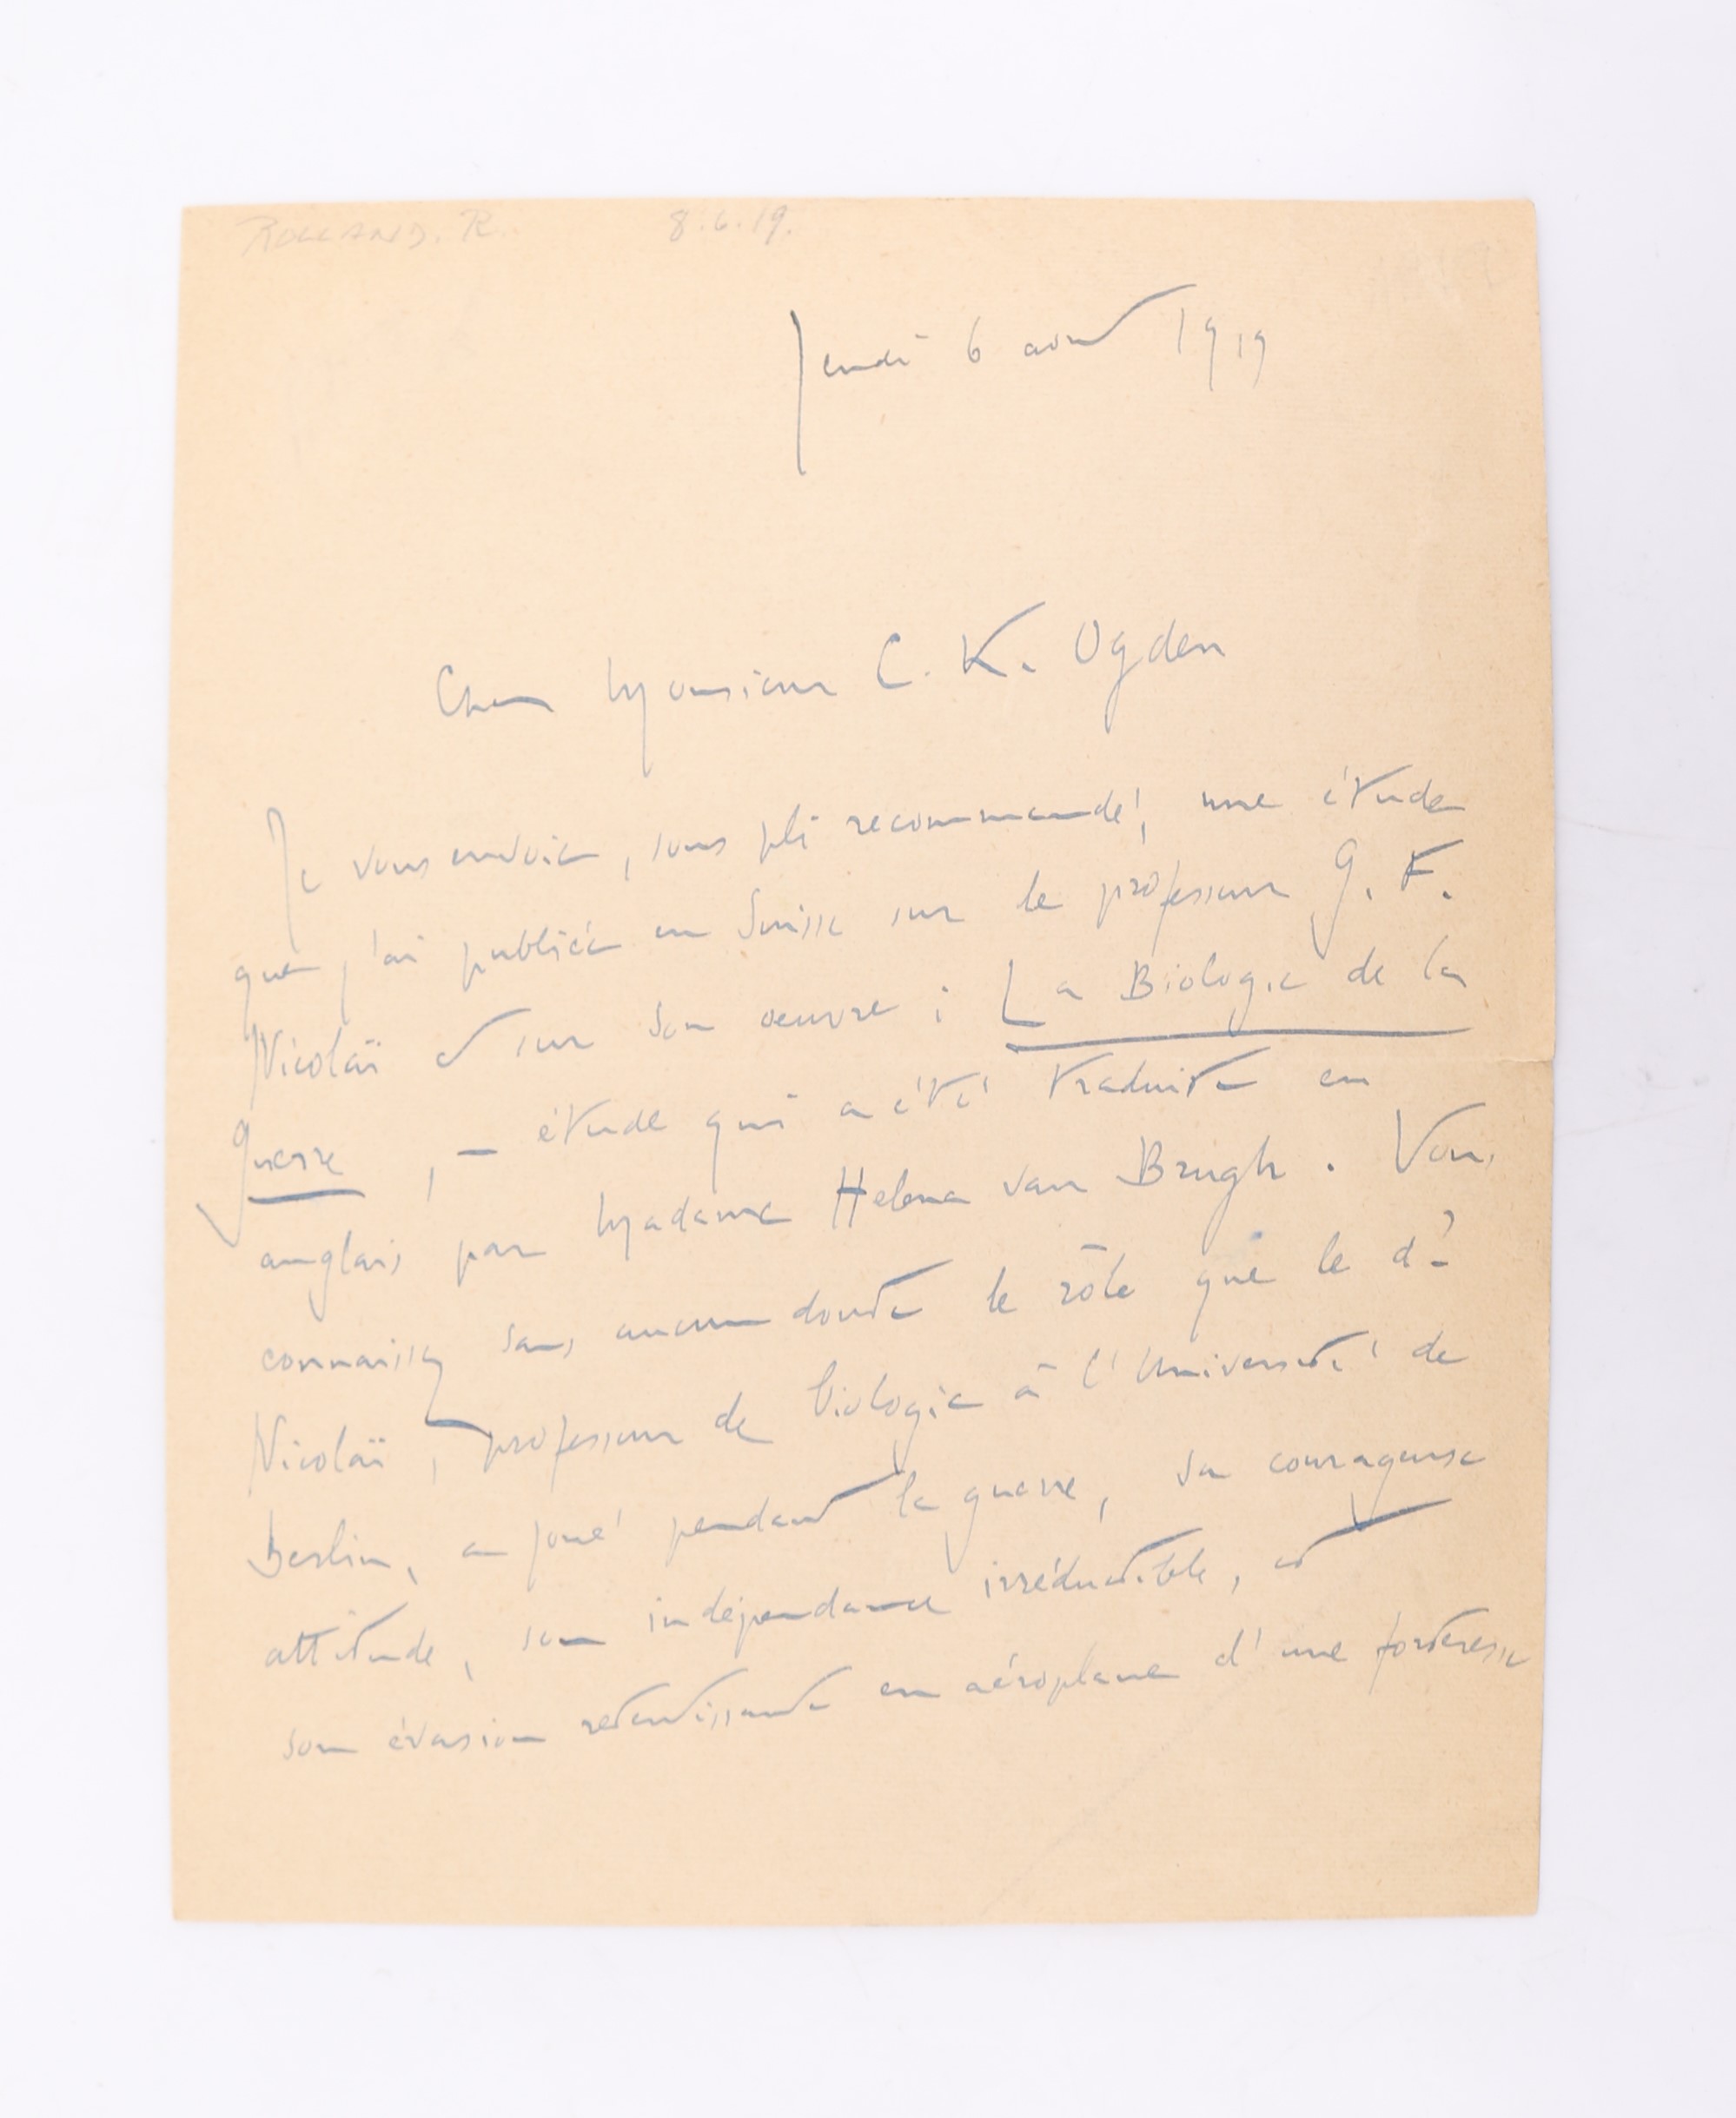 ROLLAND. R. 8.6.19.
Jeudi 6 août 1919
Cher Monsieur C. K. Ogden
Je vous envoie, sous pli recommandé, une étude
que j'ai publiée en Suisse sur le professeur G. F.
Nicolaï et sur son oeuvre : La Biologie de la
Guerre, – étude qui a été traduite en
anglais par Madame Helena van Brugh. Vous
connaissez sans aucun doute le rôle que le dr
Nicolaï, professeur de biologie à l'Université de
Berlin, a joué pendant la guerre, sa courageuse
attitude, son indépendance irréductible, et
son évasion retentissante en aéroplane d'une forteresse